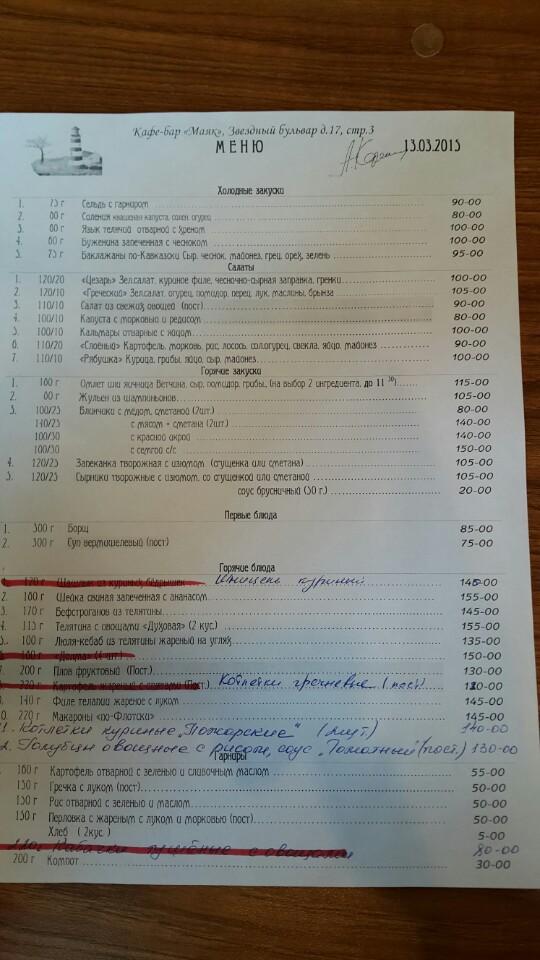 Кафе-бар «Маяк», Звездный бульвар д.17, стр.3
МЕНЮ 13.03.2015
Холодные закуски
1. 75 г Сельдь с гарниром 90-00
2. 80 г Соления квашеная капуста, солен. огурец 80-00
3. 60 г Язык телячий отварной с хреном 100-00
4. 60 г Буженина запеченная с чесноком 100-00
5. 75 г Баклажаны по-Кавказски Сыр, чеснок, майонез, грец. орех, зелень 95-00
Салаты
1. 120/20 «Цезарь» Зел.салат, куриное филе, чесночно-сырная заправка, гренки 100-00
2. 120/10 «Греческий» Зел.салат, огурец, помидор, перец, лук, маслины, брынза 105-00
3. 110/10 Салат из свежих овощей (пост) 90-00
4. 100/10 Капуста с морковью и редисом 80-00
5. 100/10 Кальмары отварные с яйцом 100-00
6. 110/20 «Слоёный» Картофель, морковь, рис, лосось, сол.огурец, свекла, яйцо, майонез 90-00
7. 110/10 «Рябушка» Курица, грибы, яйцо, сыр, майонез 100-00
Горячие закуски
1. 160 г Омлет или яичница Ветчина, сыр, помидор, грибы, (на выбор 2 ингредиента, до 11 30) 115-00
2. 60 г Жульен из шампиньонов 105-00
3. 100/25 Блинчики с медом, сметаной (2шт.) 80-00
140/25 с мясом + сметана (2шт.) 140-00
100/30 с красной икрой 140-00
100/30 с семгой с/с 150-00
4. 120/25 Запеканка творожная с изюмом (сгущенка или сметана) 105-00
5. 120/25 Сырники творожные с изюмом, со сгущенкой или сметаной 105-00
соус брусничный (30 г.) 20-00
Первые блюда
1. 300 г Борщ 85-00
2. 300 г Суп вермишелевый (пост) 75-00
Горячие блюда
120 г Шашлык из куриных бедрышек Шницель куриный 145-00
2. 160 г Шейка свиная запеченная с ананасом 155-00
3. 170 г Бефстроганов из телятины 145-00
4. 115 г Телятина с овощами «Духовая» (2 кус.) 155-00
5. 100 г Люля-кебаб из телятины жареный на углях 135-00
160 г «Долма» (4 шт.) 150-00
7. 200 г Плов фруктовый (Пост.) 130-00
220 г Картофель жареный с грибами (Пост.) Котлетки гречневые (пост) 120-00
9. 140 г Филе телапии жареное с луком 145-00
0. 220 г Макароны «по-Флотски» 145-00
1. Котлетки куриные „Пожарские“ (2шт.) 140-00
2. Голубцы овощные с рисом, соус „Томатный“ (пост.) 130-00
Гарниры
160 г Картофель отварной с зеленью и сливочным маслом 55-00
150 г Гречка с луком (пост) 50-00
150 г Рис отварной с зеленью и маслом 50-00
150 г Перловка с жареным с луком и морковью (пост) 50-00
Хлеб ( 2кус. ) 5-00
с овощами 80-00
200 г Компот 30-00